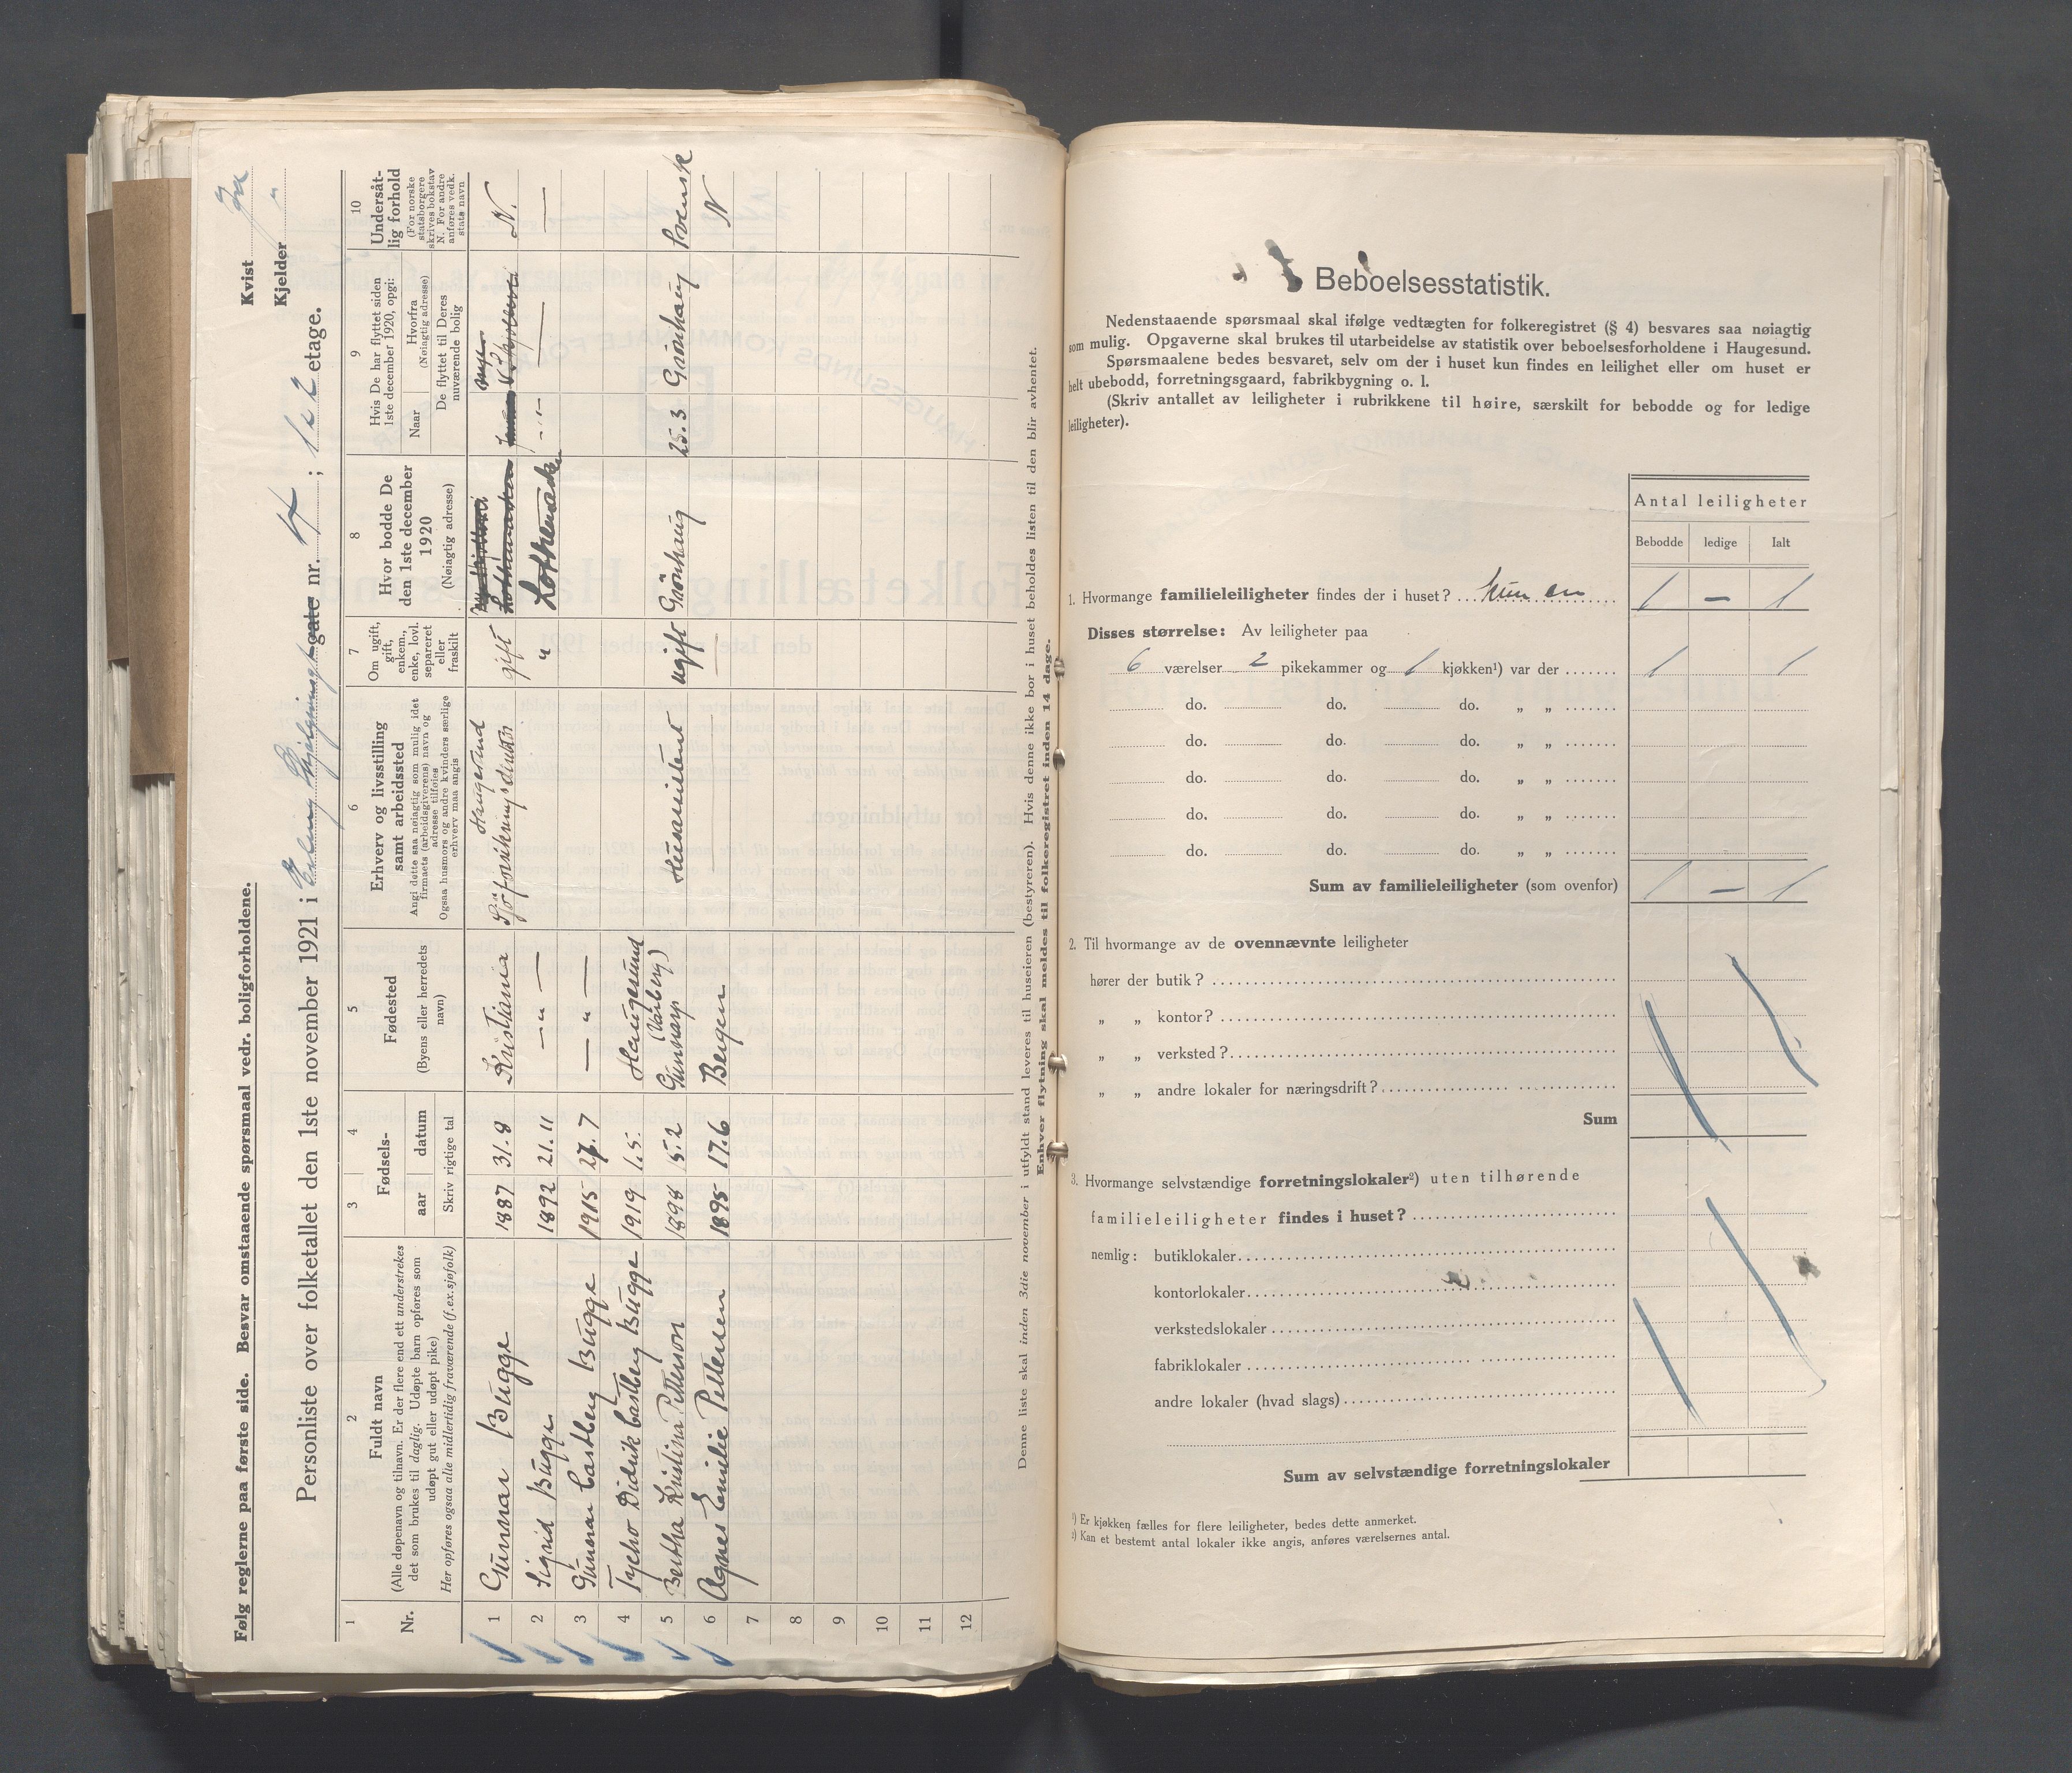 Følg reglerne paa første side. Besvar omstaaende spørsmaal vedr. boligforholdene.
Kvist Ja
Kjelder "
Personliste over folketallet den 1ste november 1921 i gate nr. 4 ; 1 & 2 etage.
1
2
3
4
5
6
7
8
9
10
Nr.
Fuldt navn
(Alle døpenavn og tilnavn. Er der flere end ett understrekes
det som brukes til daglig. Udøpte barn opføres som
udøpt gut eller udøpt pike)
Her opføres ogsaa alle midlertidig fraværende (f.ex. sjøfolk)
Fødsels-
aar
datum
Skriv rigtige tal
Fødested
(Byens eller herredets
navn)
Erhverv og livsstilling
samt arbeidssted
Angi dette saa nøiagtig som mulig idet
firmaets (arbeidsgiverens) navn og
adresse tilføies
Ogsaa husmors og andre kvinders særlige
erhverv maa angis
Om ugift,
gift,
enkem.,
enke, lovl.
separeret
eller
fraskilt
Hvor bodde De
den 1ste december
1920
(Nøiagtig adresse)
Hvis De har flyttet siden
1ste december 1920, opgi:
Naar
Hvorfra
(Nøiagtig adresse)
De flyttet til Deres
nuværende bolig
Undersåt-
lig forhold
(For norske
statsborgere
skrives bokstav
N. For andre
anføres vedk.
stats navn
1 Gunnar Bugge 1887 31.8 Kristiania Haugesund Sjöforsikringsdirektör gift N.
2 Sigrid Bugge 1892 21.11 — " — " Lothemarken - " - — —
3 Gunnar Castberg Bugge 1915 27.7 — " —
4 Tycho Didrik Castberg Bugge 1919 1.5. Haugesund
5 Bertha Kristina Petterson 1898 15.2 (Varberg) Husassistent ugift Grönhaug 25.3 Grönhaug Svensk
6 Agnes Emilie Pettersen 1895 17.6 Bergen — — N
7
8
9
10
11
12
Denne liste skal inden 3die november i utfyldt stand leveres til huseieren (bestyreren). Hvis denne ikke bor i huset beholdes listen til den blir avhentet.
Enhver flytning skal meldes til folkeregistret inden 14 dage.
Beboelsesstatistik.
Nedenstaaende spørsmaal skal ifølge vedtægten for folkeregistret (§ 4) besvares saa nøiagtig
som mulig. Opgaverne skal brukes til utarbeidelse av statistik over beboelsesforholdene i Haugesund.
Spørsmaalene bedes besvaret, selv om der i huset kun findes en leilighet eller om huset er
helt ubebodd, forretningsgaard, fabrikbygning o. l.
(Skriv antallet av leiligheter i rubrikkene til høire, særskilt for bebodde og for ledige
leiligheter).
Antal leiligheter
Bebodde ledige Ialt
1. Hvormange familieleiligheter findes der i huset? kun en 1 — 1
Disses størrelse: Av leiligheter paa
6 værelser 2 pikekammer og 1 kjøkken¹) var der 1 1
do. do. do. „ „
do. do. do. „ „
do. do. do. „ „
do. do. do. „ „
do. do. do. „ „
Sum av familieleiligheter (som ovenfor) 1 — 1
2. Til hvormange av de ovennævnte leiligheter
hører der butik?
„ „ kontor?
„ „ verksted?
„ „ andre lokaler for næringsdrift?
Sum
3. Hvormange selvstændige forretningslokaler²) uten tilhørende
familieleiligheter findes i huset?
nemlig: butiklokaler
kontorlokaler
verkstedslokaler
fabriklokaler
andre lokaler (hvad slags)
Sum av selvstændige forretningslokaler
¹) Er kjøkken fælles for flere leiligheter, bedes dette anmerket.
²) Kan et bestemt antal lokaler ikke angis, anføres værelsernes antal.